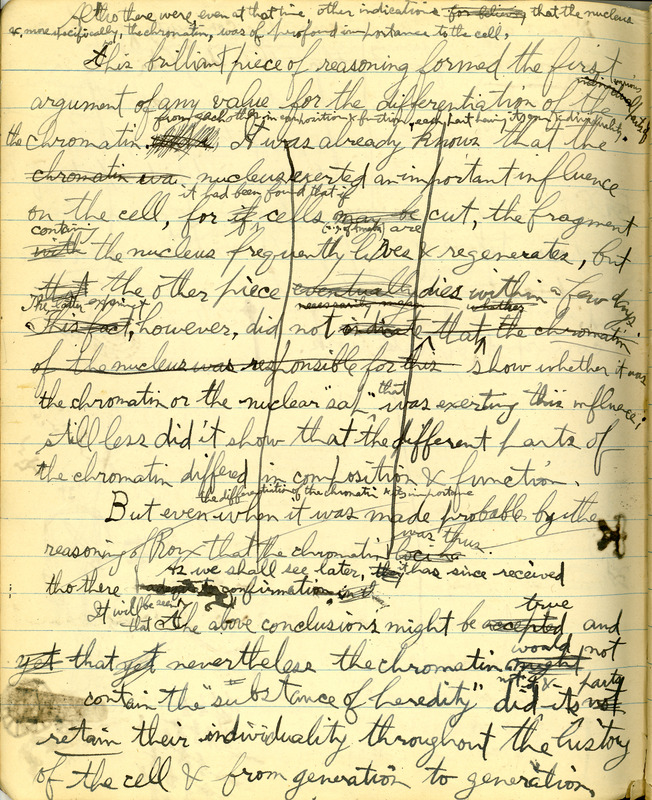 Altho there were, even at that time, other indications for believing that the nucleus
or, more specifically, the chromatin, was of profound importance to the cell,
this brilliant piece of reasoning formed the first
argument of any value for the differentiation of the various
individual parts of
from each other, in composition & function, each part having its own individuality.
the chromatin. It was already known that the
chromatin wa nucleus exerted an important influence
it had been found that if
on the cell, for if cells may be cut, the fragment
contain (e.g. of Amoeba) are
with the nucleus frequently lives & regenerates, but
that the other piece eventually dies within a few days.
The latter experiment necessarily mean whether
This fact, however, did not indicate that the chromatin
of the nucleus was responsible for this show whether it was
the chromatin or the nuclear "sap" that was exerting this influence;
still less did it show that the different parts of
the chromatin differed in composition & function.
the differentiation of the chromatin & its importance
But even when it was made probable by the
reasoning of Roux that the chromatin was thus
As we shall see later, this has since received
tho there confirmation
It will be seen true
that the above conclusions might be accepted and
would not
yet that yet nevertheless the chromatin might
not if parts
contain the "substance of heredity" did its not
retain their individuality throughout the history
of the cell & from generation to generation